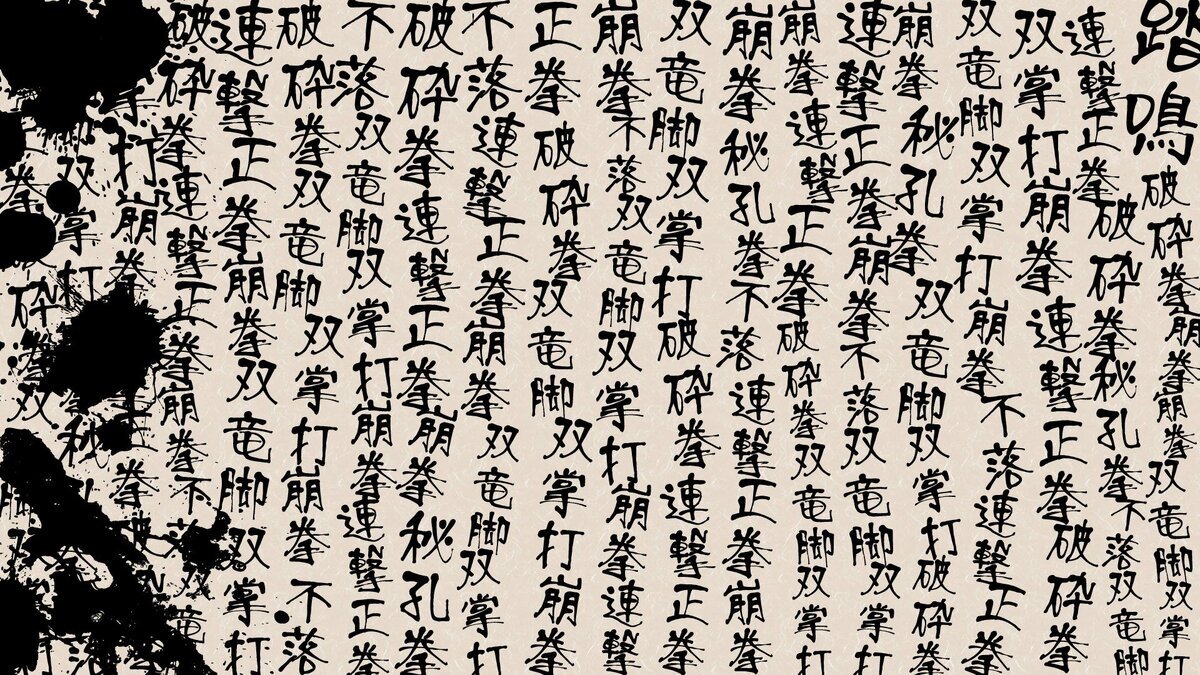 踏鳴破砕拳崩拳崩拳双竜脚双掌打
連撃正拳破砕拳秘孔拳不落双竜脚
双掌打崩拳連撃正拳破砕拳
双竜脚双掌打崩拳不落連撃正拳
崩拳秘孔拳双竜脚双掌打破砕拳
連撃正拳崩拳不落双竜脚双掌打
崩拳連撃正拳破砕拳双竜脚双掌打
崩拳秘孔拳不落連撃正拳崩拳
双竜脚双掌打破砕拳連撃正拳
崩拳不落双竜脚双掌打崩拳連撃
正拳破砕拳双竜脚双掌打崩拳
不落連撃正拳崩拳双竜脚双掌打
破砕拳連撃正拳崩拳秘孔拳
不落双竜脚双掌打崩拳連撃正拳
破砕拳双竜脚双掌打崩拳不落
連撃正拳崩拳双竜脚双掌打
破砕拳連撃正拳崩拳不落双竜
掌打崩拳正拳破
双掌打秘
拳砕拳双脚